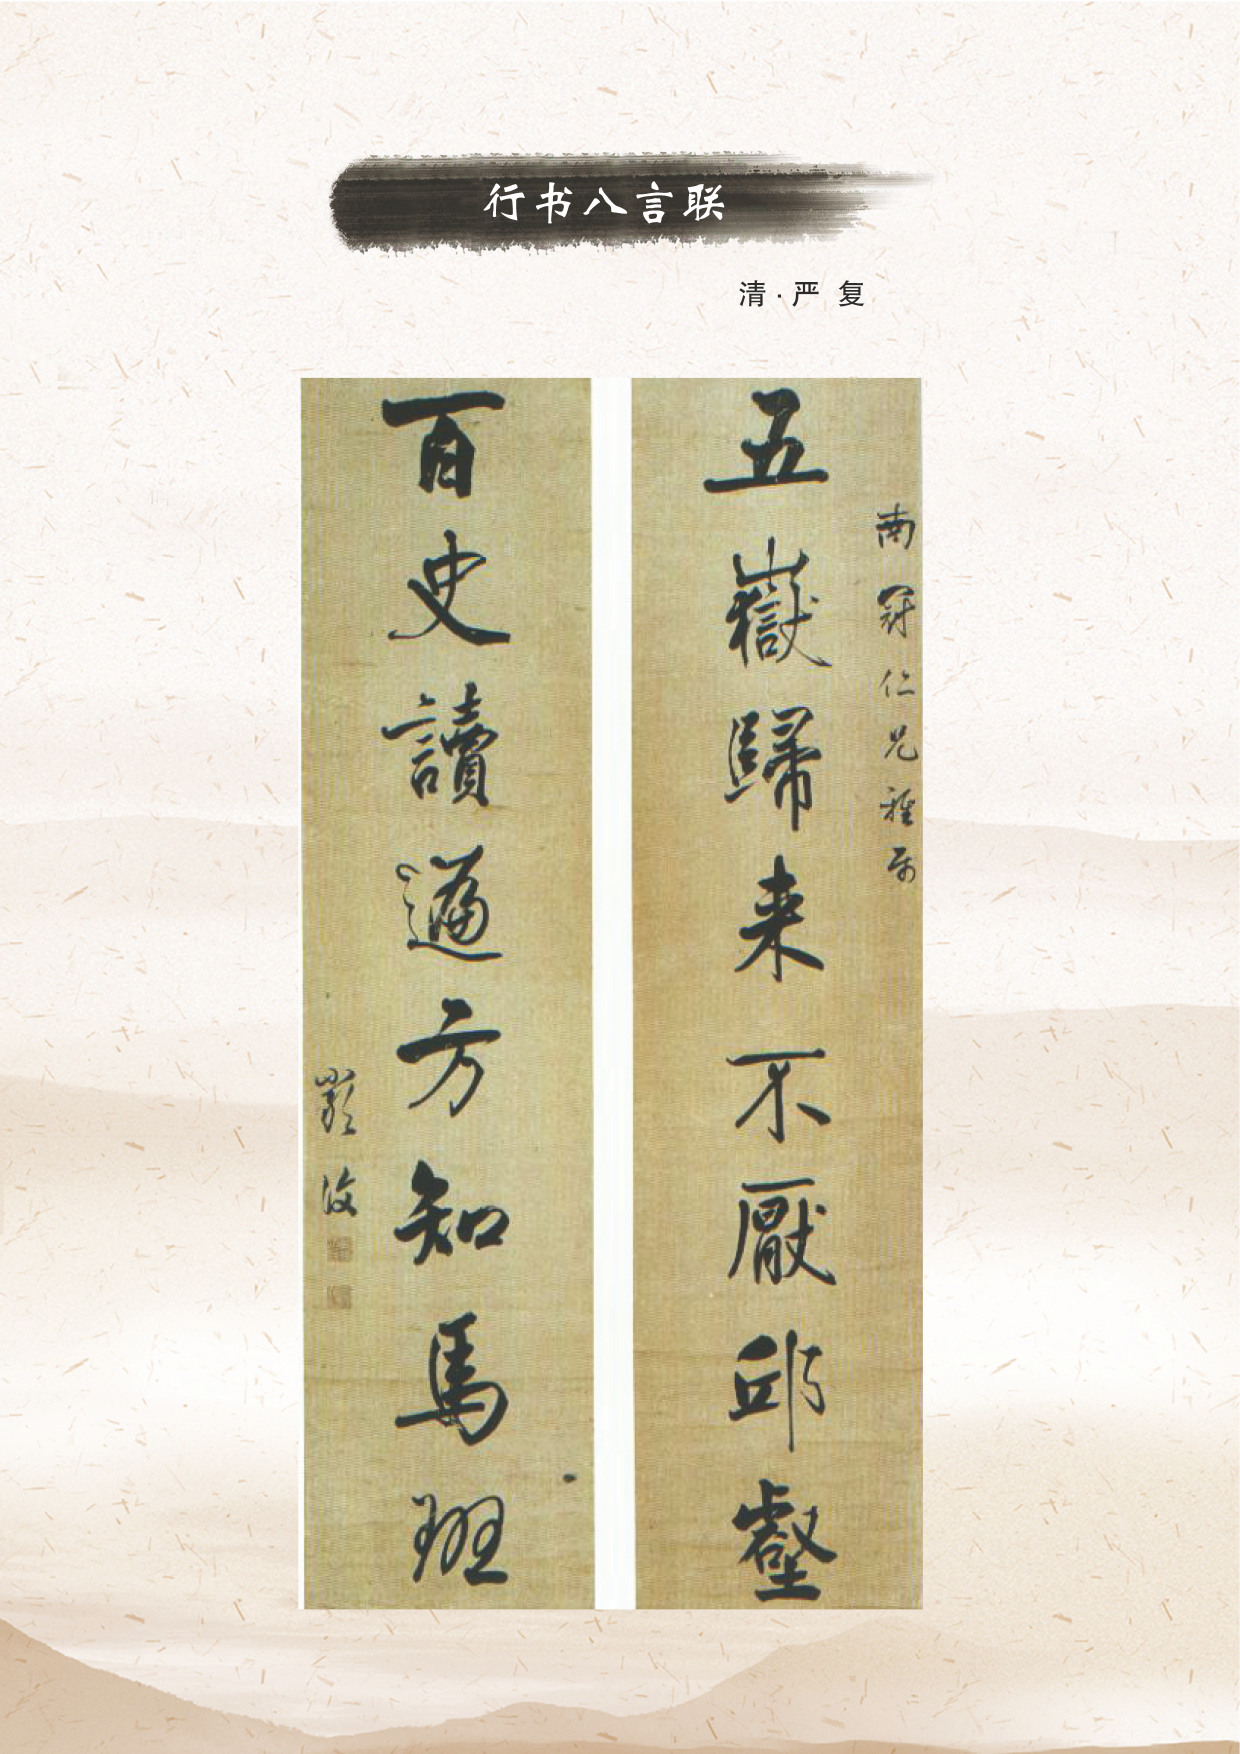 行书八言联
清·严 复
五嶽歸来不厭邱壑
南冠仁兄雅属
百史讀遍方知馬班
嚴復